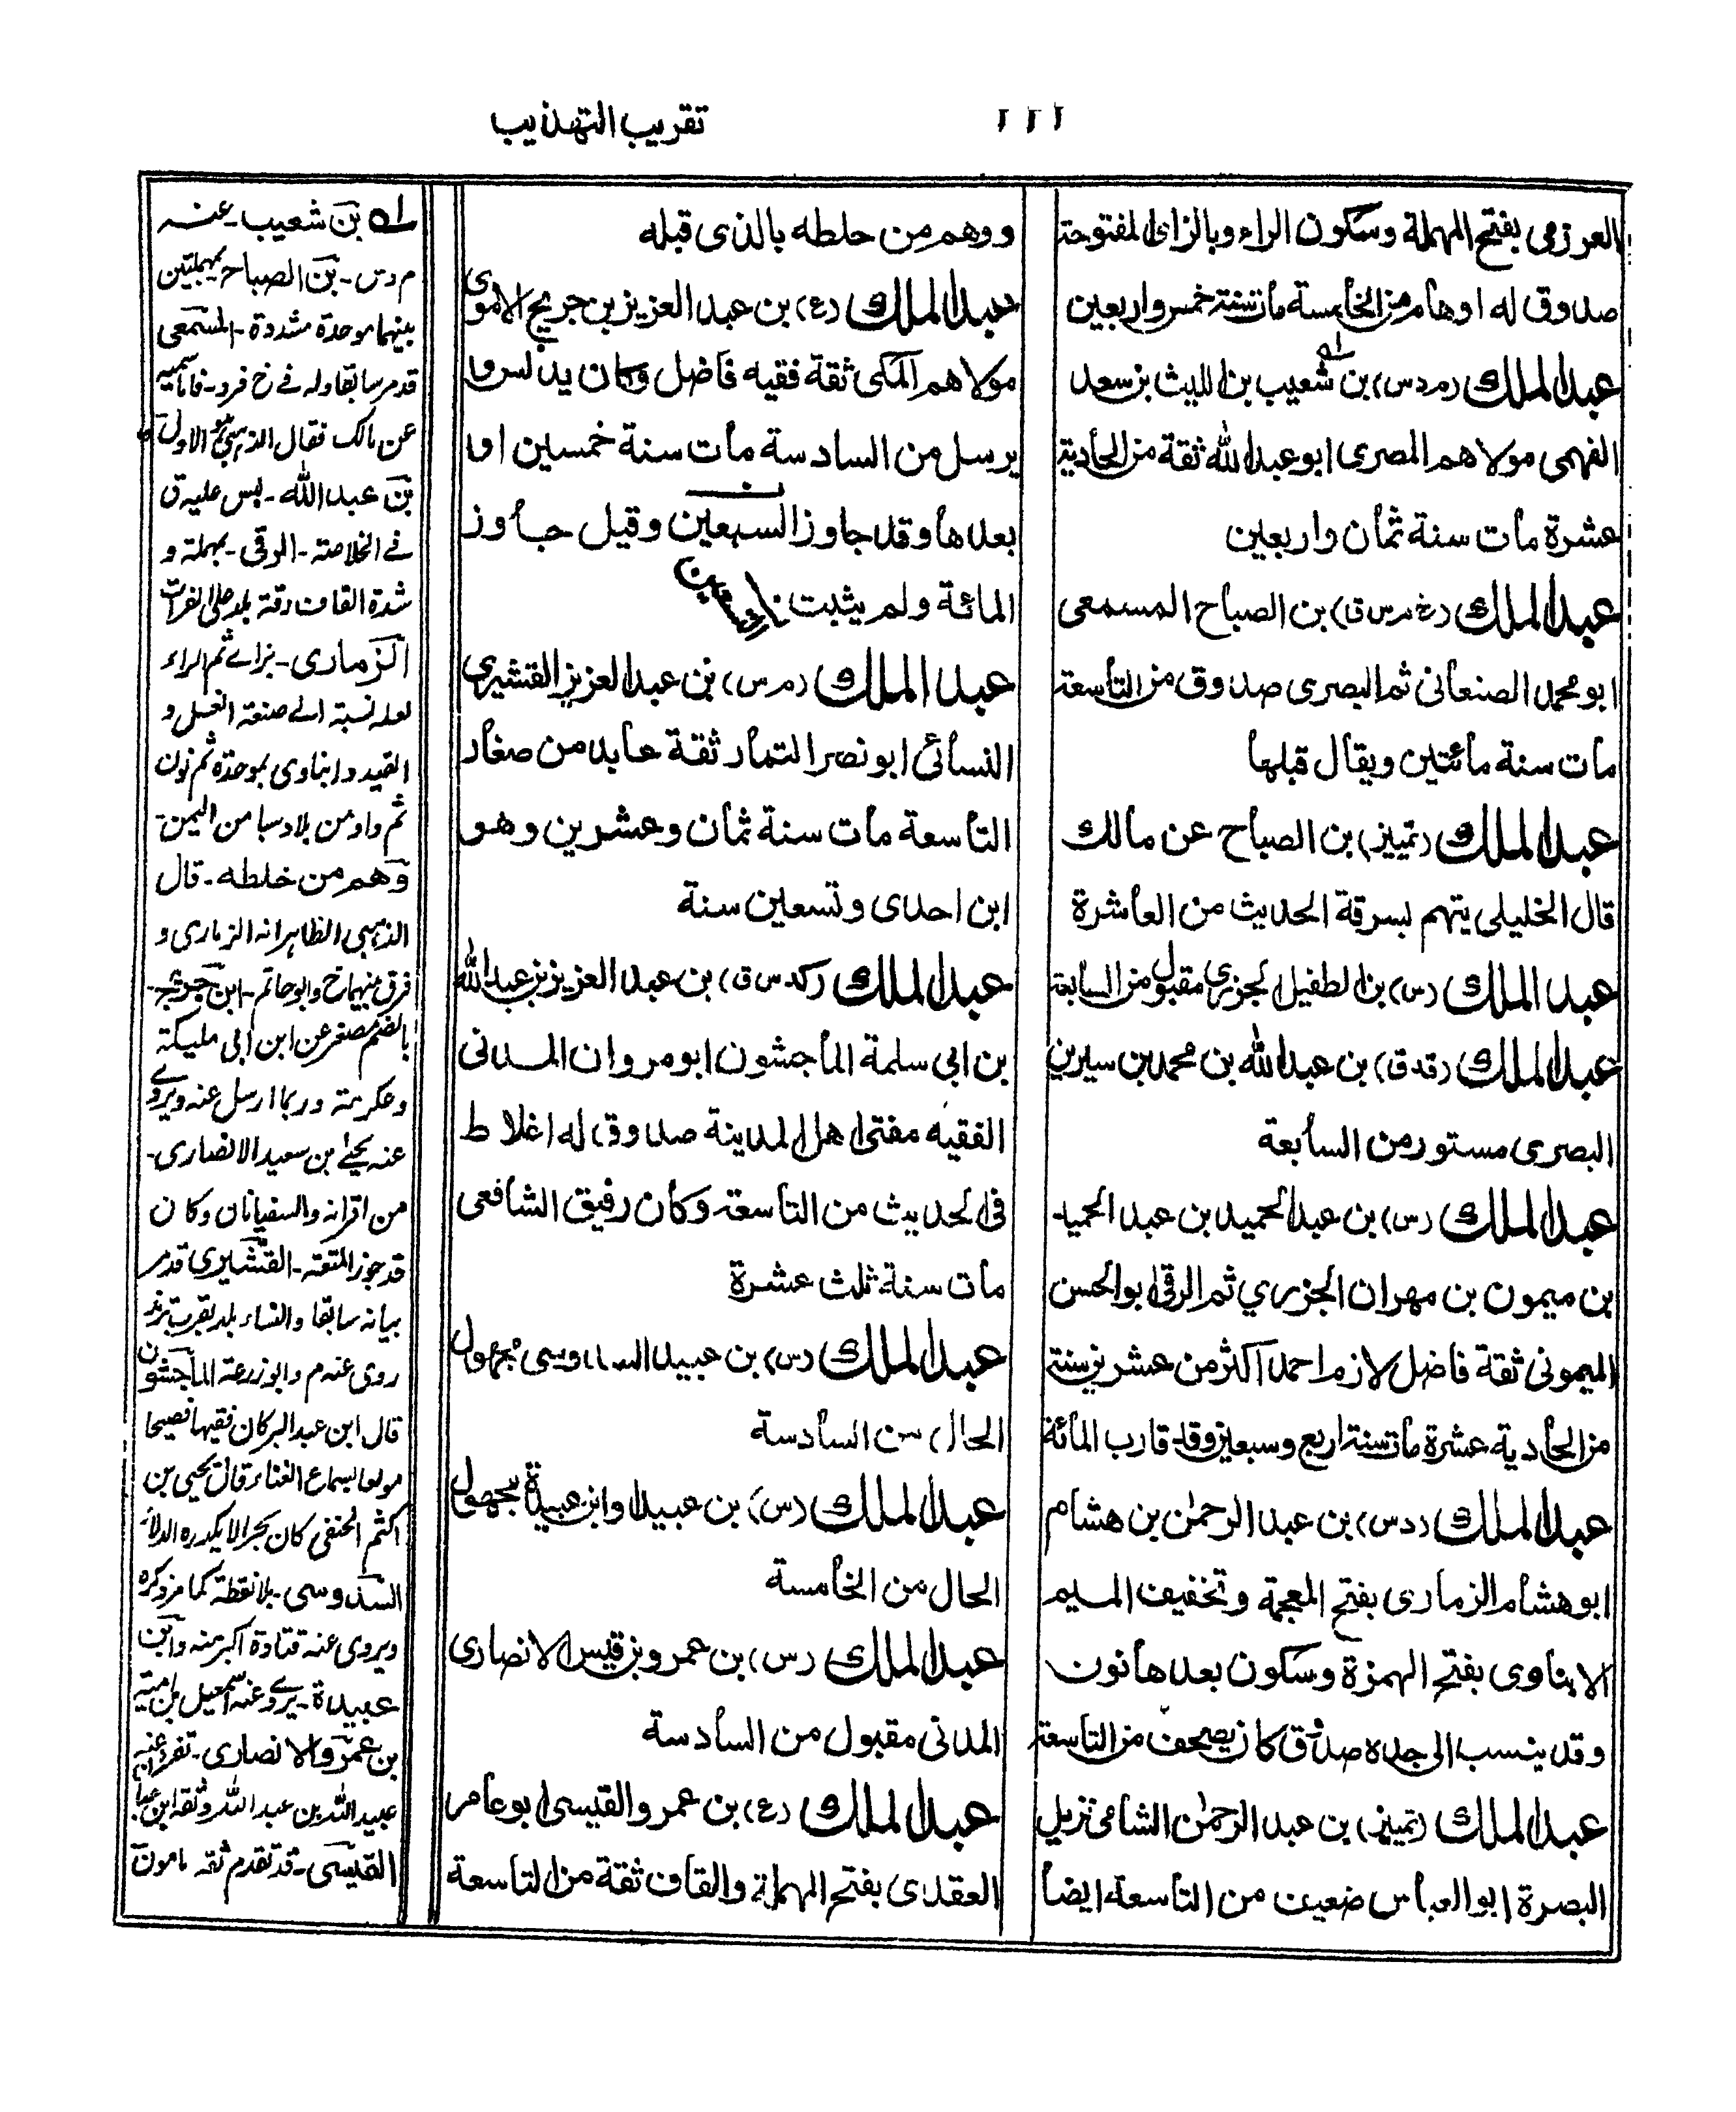 تقريب التهذيب
العرزمى بفتح المهملة وسكون الراء وبالزاى المفتوحة
صدوق له اوهام من الخامسة مات سنة خمس واربعين
عبد الملك (م د س) بن شعيب بن الليث بن سعد
الفهمى مولاهم المصرى ابو عبد الله ثقة من الحادية
عشرة مات سنة ثمان واربعين
عبد الملك (خ م س ق) بن الصباح المسمعى
ابو محمد الصنعانى ثم البصرى صدوق من التاسعة
مات سنة مائتين ويقال قبلها
عبد الملك (تمييز) بن الصباح عن مالك
قال الخليلى يتهم بسرقة الحديث من العاشرة
عبد الملك (س) بن الطفيل الجزرى مقبول من السابعة
عبد الملك (قد ق) بن عبد الله بن محمد بن سيرين
البصرى مستور من السابعة
عبد الملك (س) بن عبد الحميد بن عبد الحميد
بن ميمون بن مهران الجزري ثم الرقى ابو الحسن
الميمونى ثقة فاضل لازم احمد اكثر من عشرين سنة
من الحادية عشرة مات سنة اربع وسبعين وقد قارب المائة
عبد الملك (د س) بن عبد الرحمن بن هشام
ابو هشام الزمارى بفتح المعجمة وتخفيف الميم
الابناوى بفتح الهمزة وسكون بعدها نون
وقد ينسب الى جده صدوق كان يصحف من التاسعة
عبد الملك (تمييز) بن عبد الرحمن الشامى نزيل
البصرة ابو العباس ضعيف من التاسعة ايضا
ووهم من خلطه بالذى قبله
عبد الملك (ع) بن عبد العزيز بن جريج الاموى
مولاهم المكى ثقة فقيه فاضل وكان يدلس و
يرسل من السادسة مات سنة خمسين او
بعدها وقد جاوز السبعين وقيل جاوز
المائة ولم يثبت
عبد الملك (م س) بن عبد العزيز القشيرى
النسائى ابو نصر التمار ثقة عابد من صغار
التاسعة مات سنة ثمان وعشرين وهو
ابن احدى وتسعين سنة
عبد الملك (كد س ق) بن عبد العزيز بن عبد الله
بن ابى سلمة الماجشون ابو مروان المدنى
الفقيه مفتى اهل المدينة صدوق له اغلاط
فى الحديث من التاسعة وكان رفيق الشافعى
مات سنة ثلث عشرة
عبد الملك (س) بن عبيد السدوسى مجهول
الحال من السادسة
عبد الملك (س) بن عبيد او ابن عبيدة مجهول
الحال من الخامسة
عبد الملك (س) بن عمرو بن قيس الانصارى
المدنى مقبول من السادسة
عبد الملك (ع) بن عمرو القيسى ابو عامر
العقدى بفتح المهملة والقاف ثقة من التاسعة
بن شعيب - عنه
م د س - بن الصباح بمهملتين
بينهما موحدة مشددة - المسمعى
قدم سابقا وله فى خ فرد - فاما سميه
عن مالك فقال الذهبى هو الاول
بن عبد الله - ليس عليه ق
فى الخلاصة - الرقى - بمهملة و
شدة القاف رقة بلد على الفرات
الزمارى - بزاے ثم الراء
لعله نسبة الى صنعة الغسل و
القيد و ابناوى بموحدة ثم نون
ثم واو من بلاد سبا من اليمن
وهم من خلطه - قال
الذهبى الظاهر انه الزمارى و
فرق بينهما خ وابو حاتم - ابن جريج -
بالضم مصغر عن ابن ابى مليكة
وعكرمة وربما ارسل عنه ويروے
عنه يحيى بن سعيد الانصارى -
من اقرانه والسفيانان وكان
قد جوز المتعة - القشيرى قدم
بيانه سابقا والنساء بلد بقرب
روى عنه م وابو زرعة الماجشون
قال ابن عبد البر كان فقيها فصيحا
مولعا بسماع الغناء وقال يحيى بن
اكثم الحنفى كان بحرا لا يكدره الدلاء
السدوسى - بلا نقطة كما مر ذكره
ويروى عنه قتادة اكبر منه وابن
عبيدة - يروے عنه اسمعيل بن امية
بن عمرو الانصارى - تفرد عنه
عبيد الله بن عبد الله وثقه ابن
القيسى - قد تقدم ثقه مامون